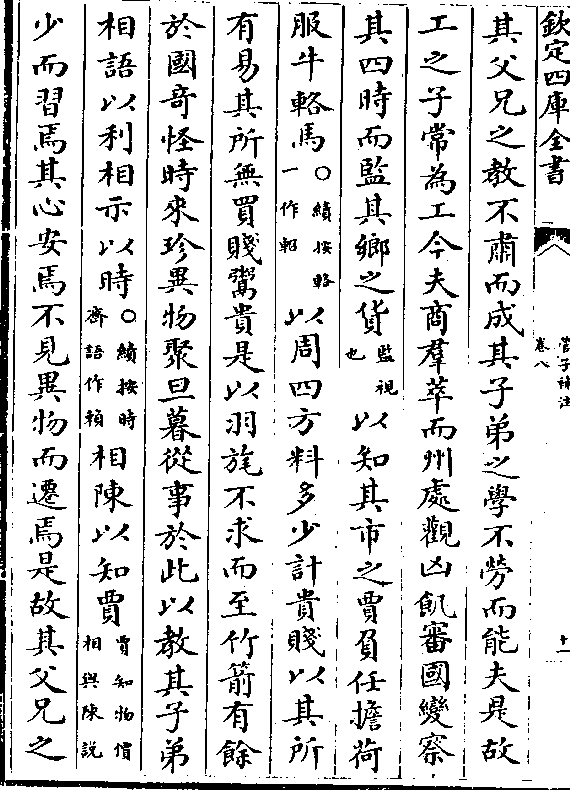 欽定四庫全書
管子補注
卷八
十一
其父兄之教不肅而成其子弟之學不勞而能夫是故
工之子常為工今夫商羣萃而州處觀凶飢審國變察
其四時而監其鄉之貨監視也以知其市之賈負任擔荷
服牛輅馬○績按輅一作軺以周四方料多少計貴賤以其所
有易其所無買賤鬻貴是以羽旄不求而至竹箭有餘
於國奇怪時來珍異物聚旦暮從事於此以教其子弟
相語以利相示以時○績按時齊語作賴相陳以知賈賈知物價相與陳説
少而習焉其心安焉不見異物而遷焉是故其父兄之